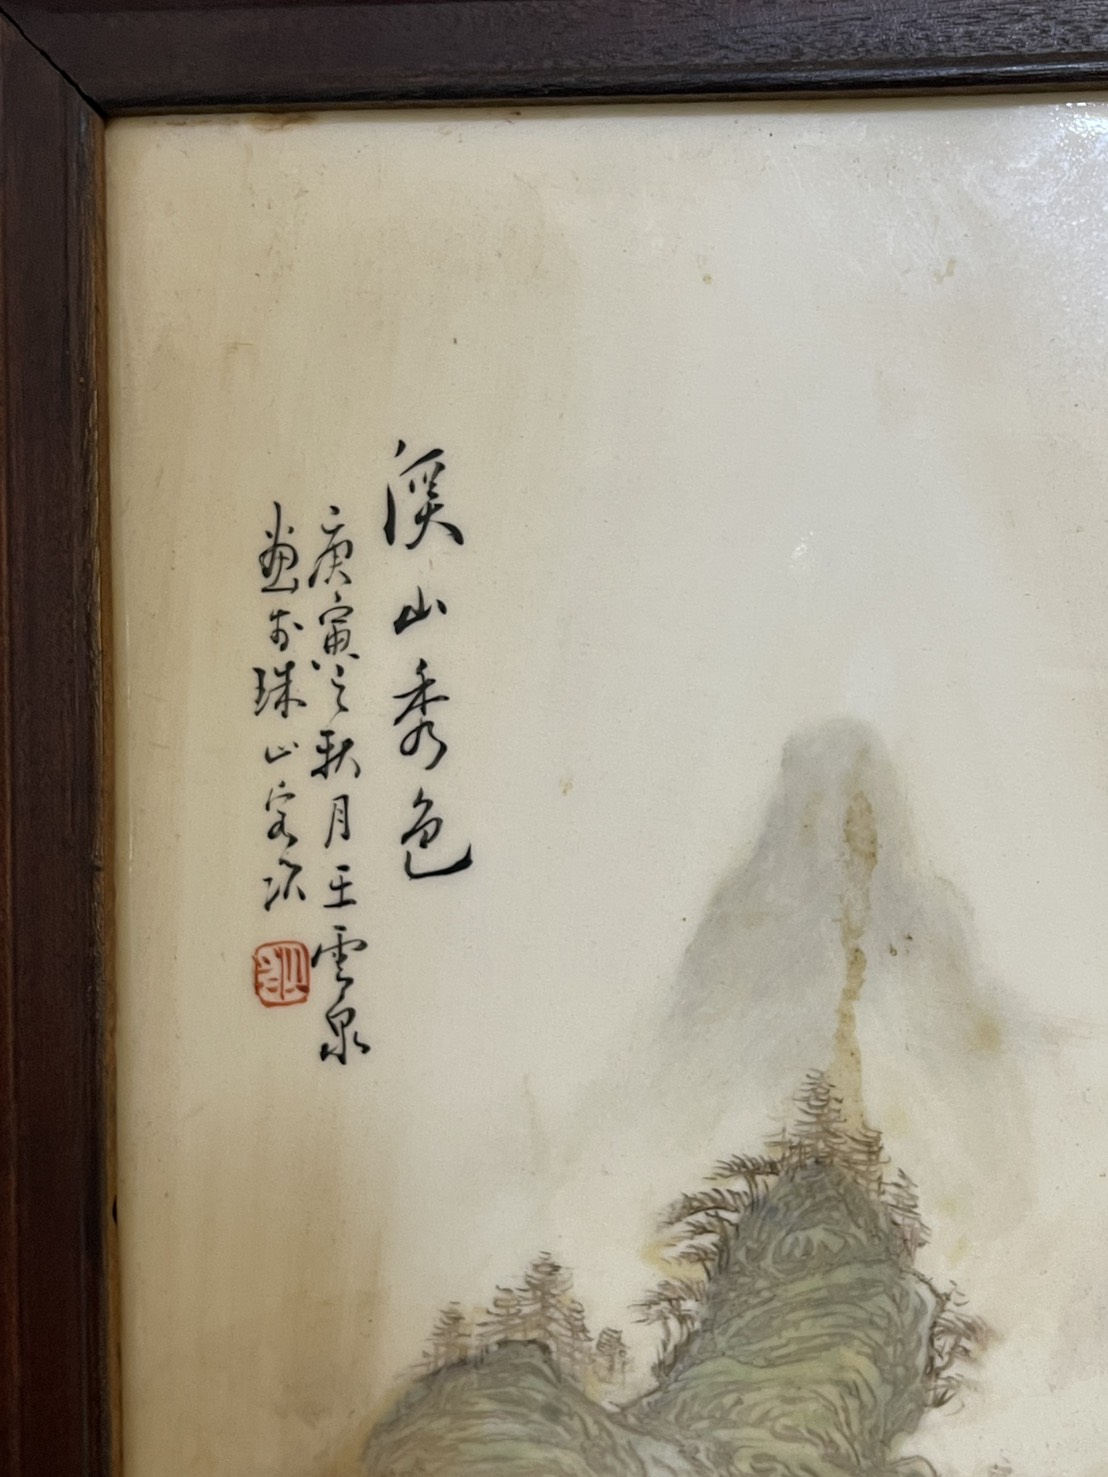 溪山秀色
庚寅之秋月王雲泉
畫於珠山客次